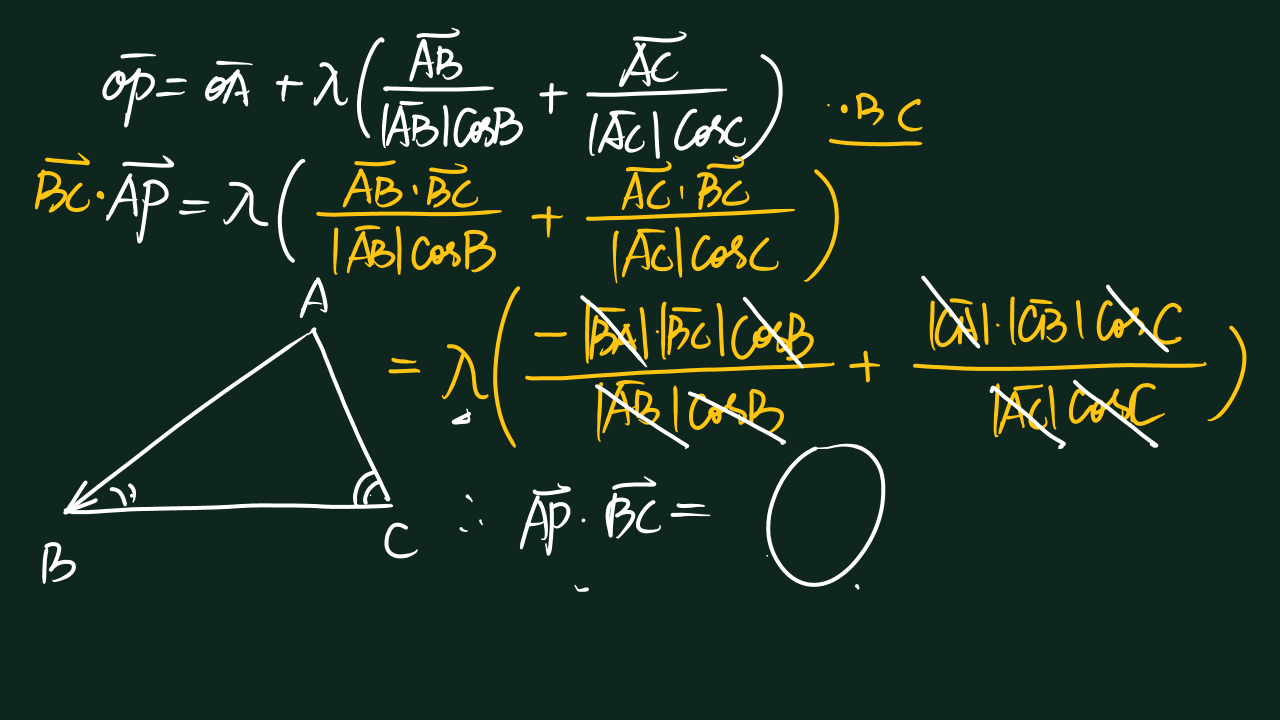 $\overline{OP} = \overline{OA} + \lambda \left( \frac{\overrightarrow{AB}}{|\overline{AB}| \cos B} + \frac{\overrightarrow{AC}}{|\overline{AC}| \cos C} \right)$ $\cdot BC$
$\overrightarrow{BC} \cdot \overrightarrow{AP} = \lambda \left( \frac{\overline{AB} \cdot \overrightarrow{BC}}{|\overline{AB}| \cos B} + \frac{\overrightarrow{AC} \cdot \overrightarrow{BC}}{|\overline{AC}| \cos C} \right)$
A
$= \lambda \left( \frac{-|\overline{BA}| \cdot |\overline{BC}| \cos B}{|\overline{AB}| \cos B} + \frac{|\overline{CA}| \cdot |\overline{CB}| \cos C}{|\overline{AC}| \cos C} \right)$
$\therefore \overrightarrow{AP} \cdot \overrightarrow{BC} = 0$
B C